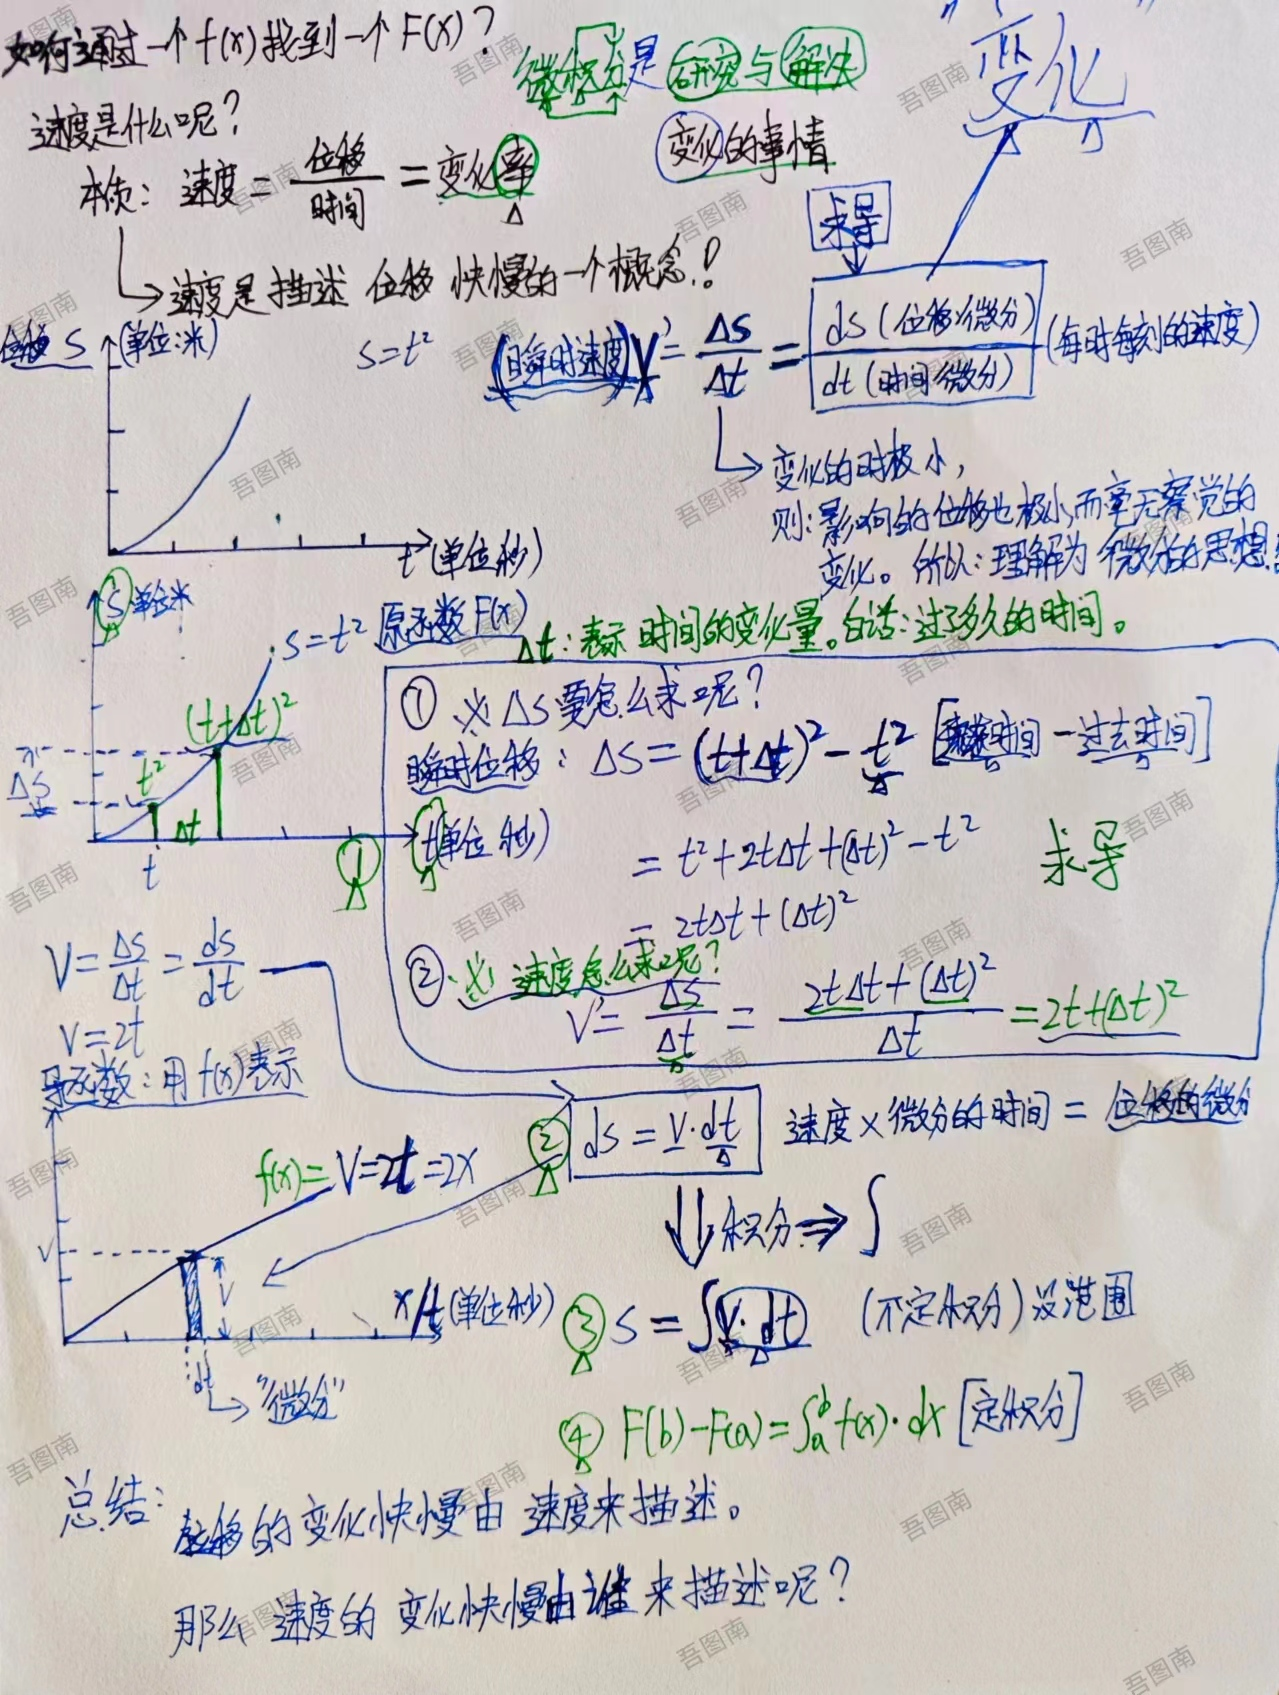 如何通过一个 f(x) 找到一个 F(x)?
微积分是研究与解决
变化的事情
变化
速度是什么呢?
本质: 速度 = 位移/时间 = 变化率
速度是描述 位移 快慢的一个概念!
求导
位移 S (单位:米)
s=t²
(瞬时速度) V' = Δs/Δt = ds(位移微分)/dt(时间微分) (每时每刻的速度)
变化的时极小,
则:影响的位移也极小,而毫无察觉的
变化。所以:理解为 微分的思想
t (单位秒)
S 单位米
s=t² 原函数 F(x)
Δt:表示 时间的变化量。白话:过了多久的时间。
(t+Δt)²
t²
Δs
Δt
t
t(单位 秒)
①
① ※ Δs 要怎么求呢?
瞬时位移: Δs = (t+Δt)² - t² [时间 - 过去时间]
= t²+2tΔt+(Δt)² - t²
求导
= 2tΔt+(Δt)²
② ※ 速度怎么求呢?
V' = Δs/Δt = 2tΔt+(Δt)²/Δt = 2t+(Δt)²
V = Δs/Δt = ds/dt
V=2t
导函数:用 f(x) 表示
② ds = V·dt 速度×微分的时间 = 位移的微分
f(x)= V=2t=2x
V
V
dt
"微分"
x/t (单位秒)
积分 ⇒ ∫
③ S = ∫V·dt (不定积分) 没范围
④ F(b)-F(a)=∫ₐᵇ f(x)·dx [定积分]
总结: 位移的变化快慢由 速度来描述。
那么 速度的 变化快慢由谁来描述呢?
吾图南